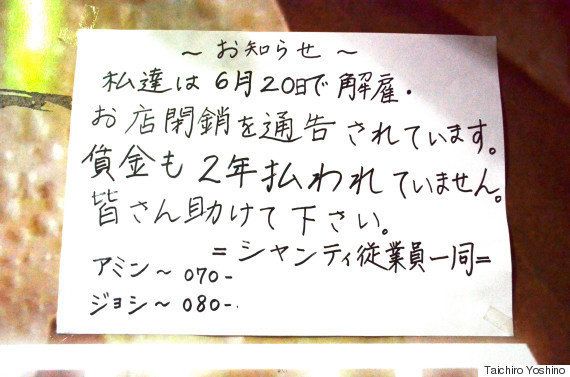 ～お知らせ～
私達は6月20日で解雇・
お店閉鎖を通告されています。
賃金も2年払われていません。
皆さん助けて下さい。
=シャンティ従業員一同=
アミン～070-
ジョシ～080-
Taichiro Yoshino